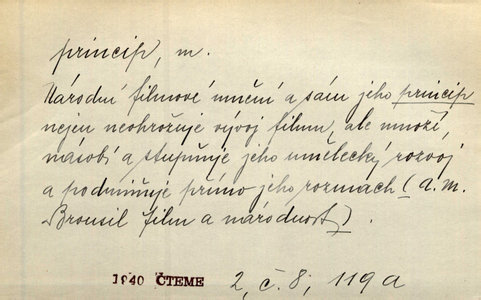 princip, m.
Národní filmové umění a sám jeho princip
nejen neohrožuje vývoj filmu, ale množí,
násobí a stupňuje jeho umělecký rozvoj
a podmiňuje přímo jeho rozmach (A. M.
Brousil Film a národnost).
1940 ČTEME 2, č. 8, 119a